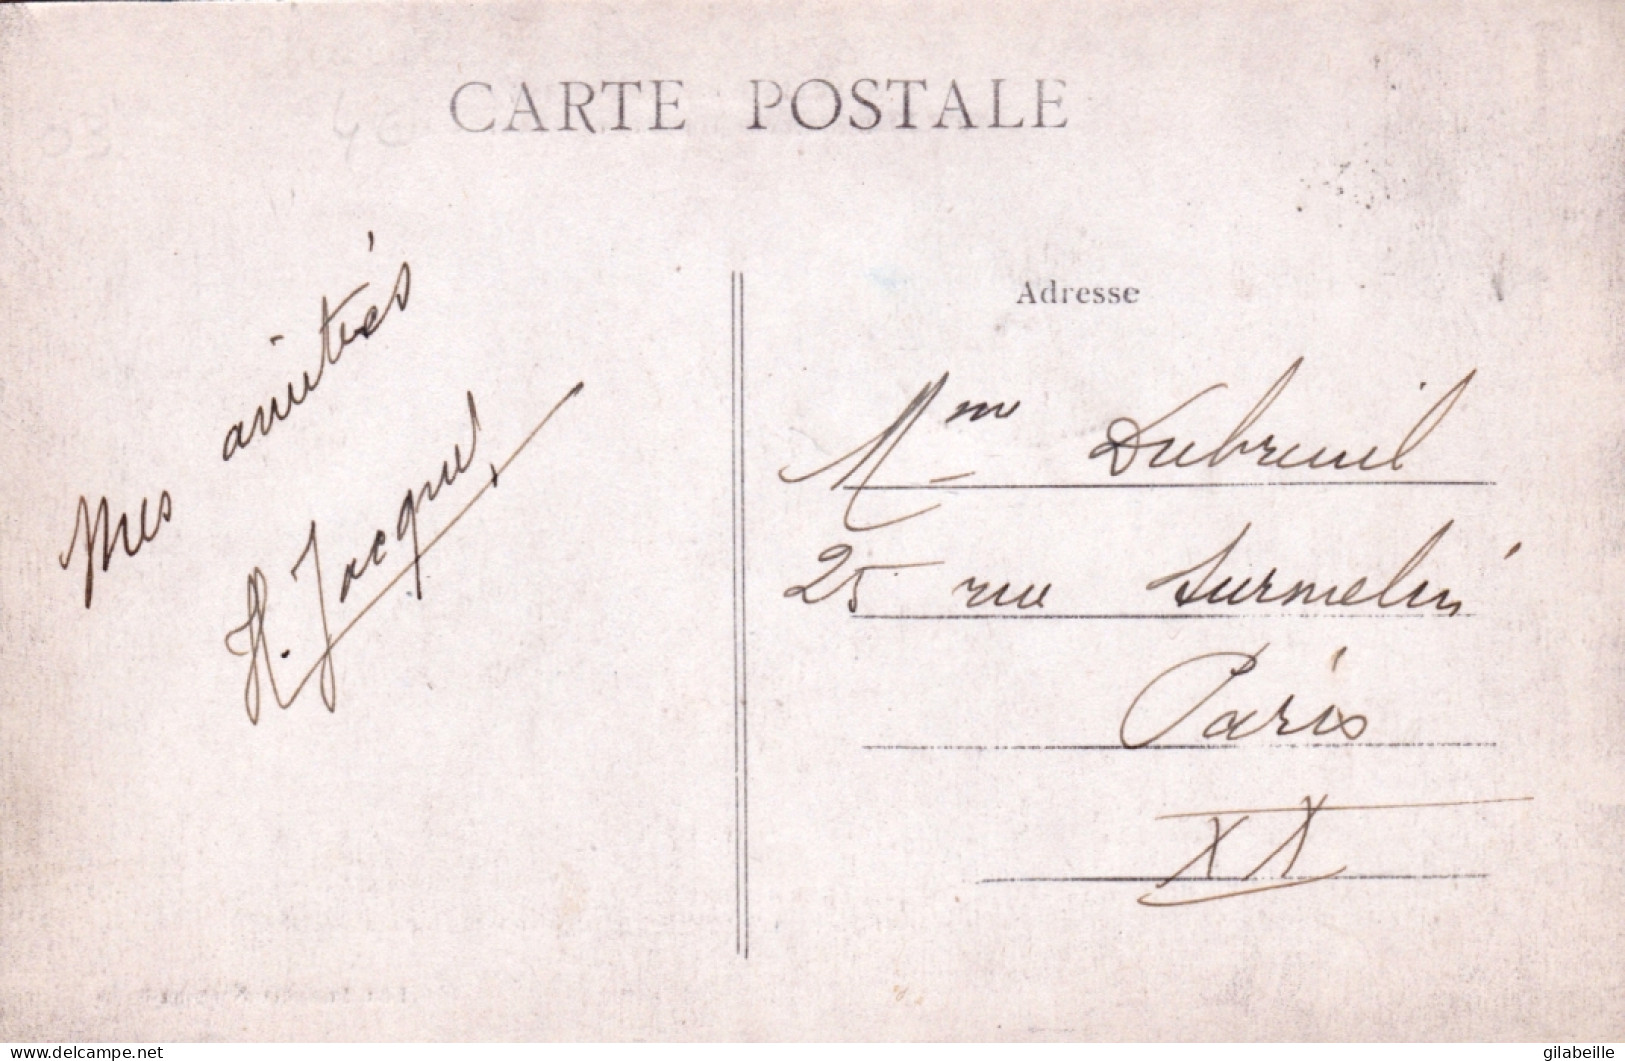 CARTE POSTALE
03
46
Mes amitiés
H. Jacquel
Adresse
Mme Dubreuil
25 rue Surmelin
Paris
XX
delcampe.net
gilabeille